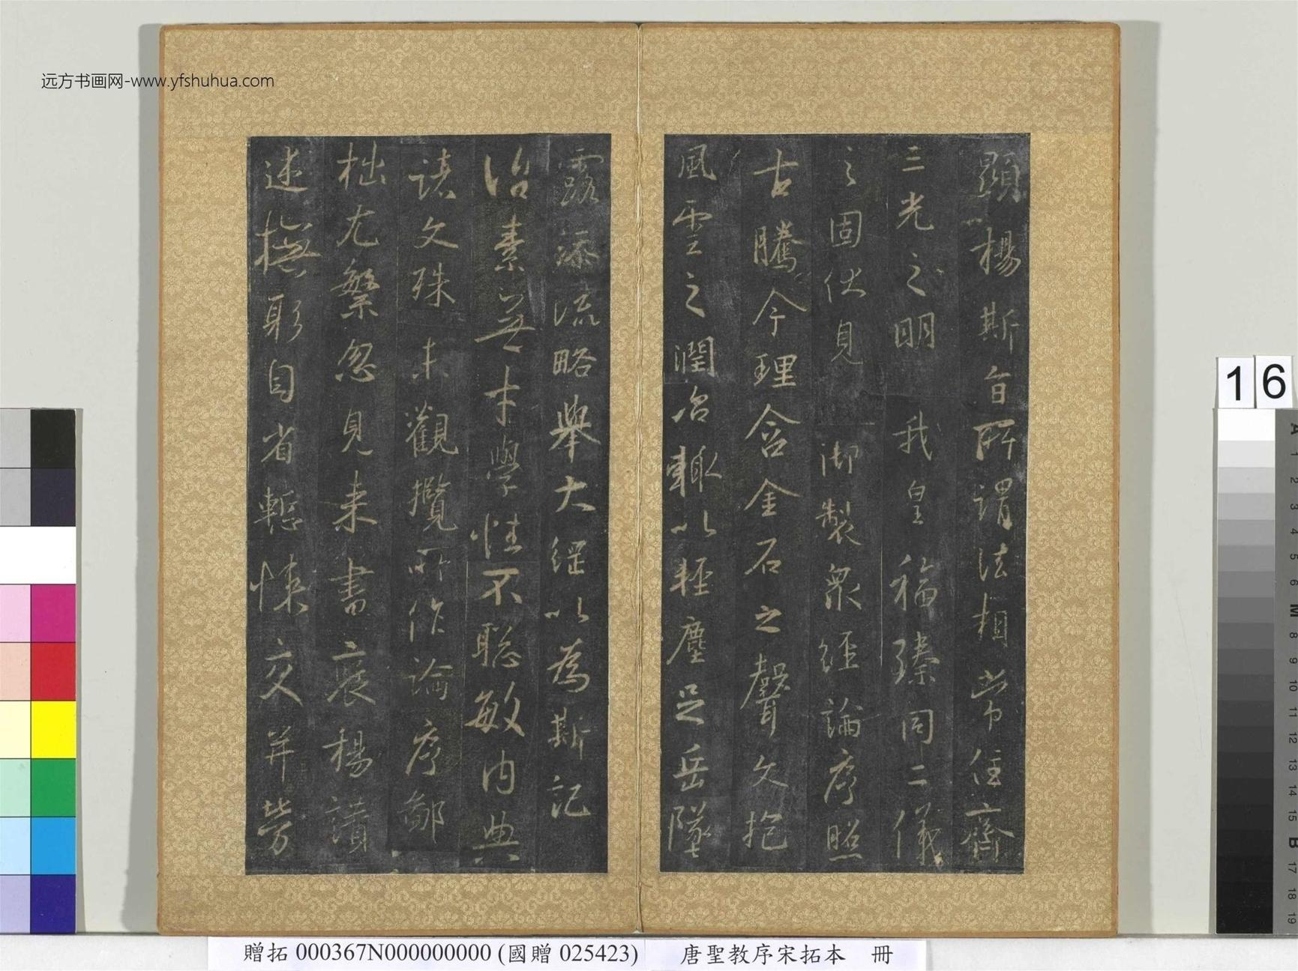 远方书画网-www.yfshuhua.com
顯揚斯旨所謂法相常住齊
三光之明 我皇福臻同二儀
之固伏見 御製衆經論序照
古騰今理含金石之聲文抱
風雲之潤治輒以輕塵足岳墜
露添流略舉大綱以為斯記
治素無才學性不聰敏內典
諸文殊未觀攬所作論序鄙
拙尤繁忽見來書褒揚讚
述撫躬自省慙悚交并勞
16
贈拓 000367N000000000 (國贈 025423) 唐聖教序宋拓本 冊